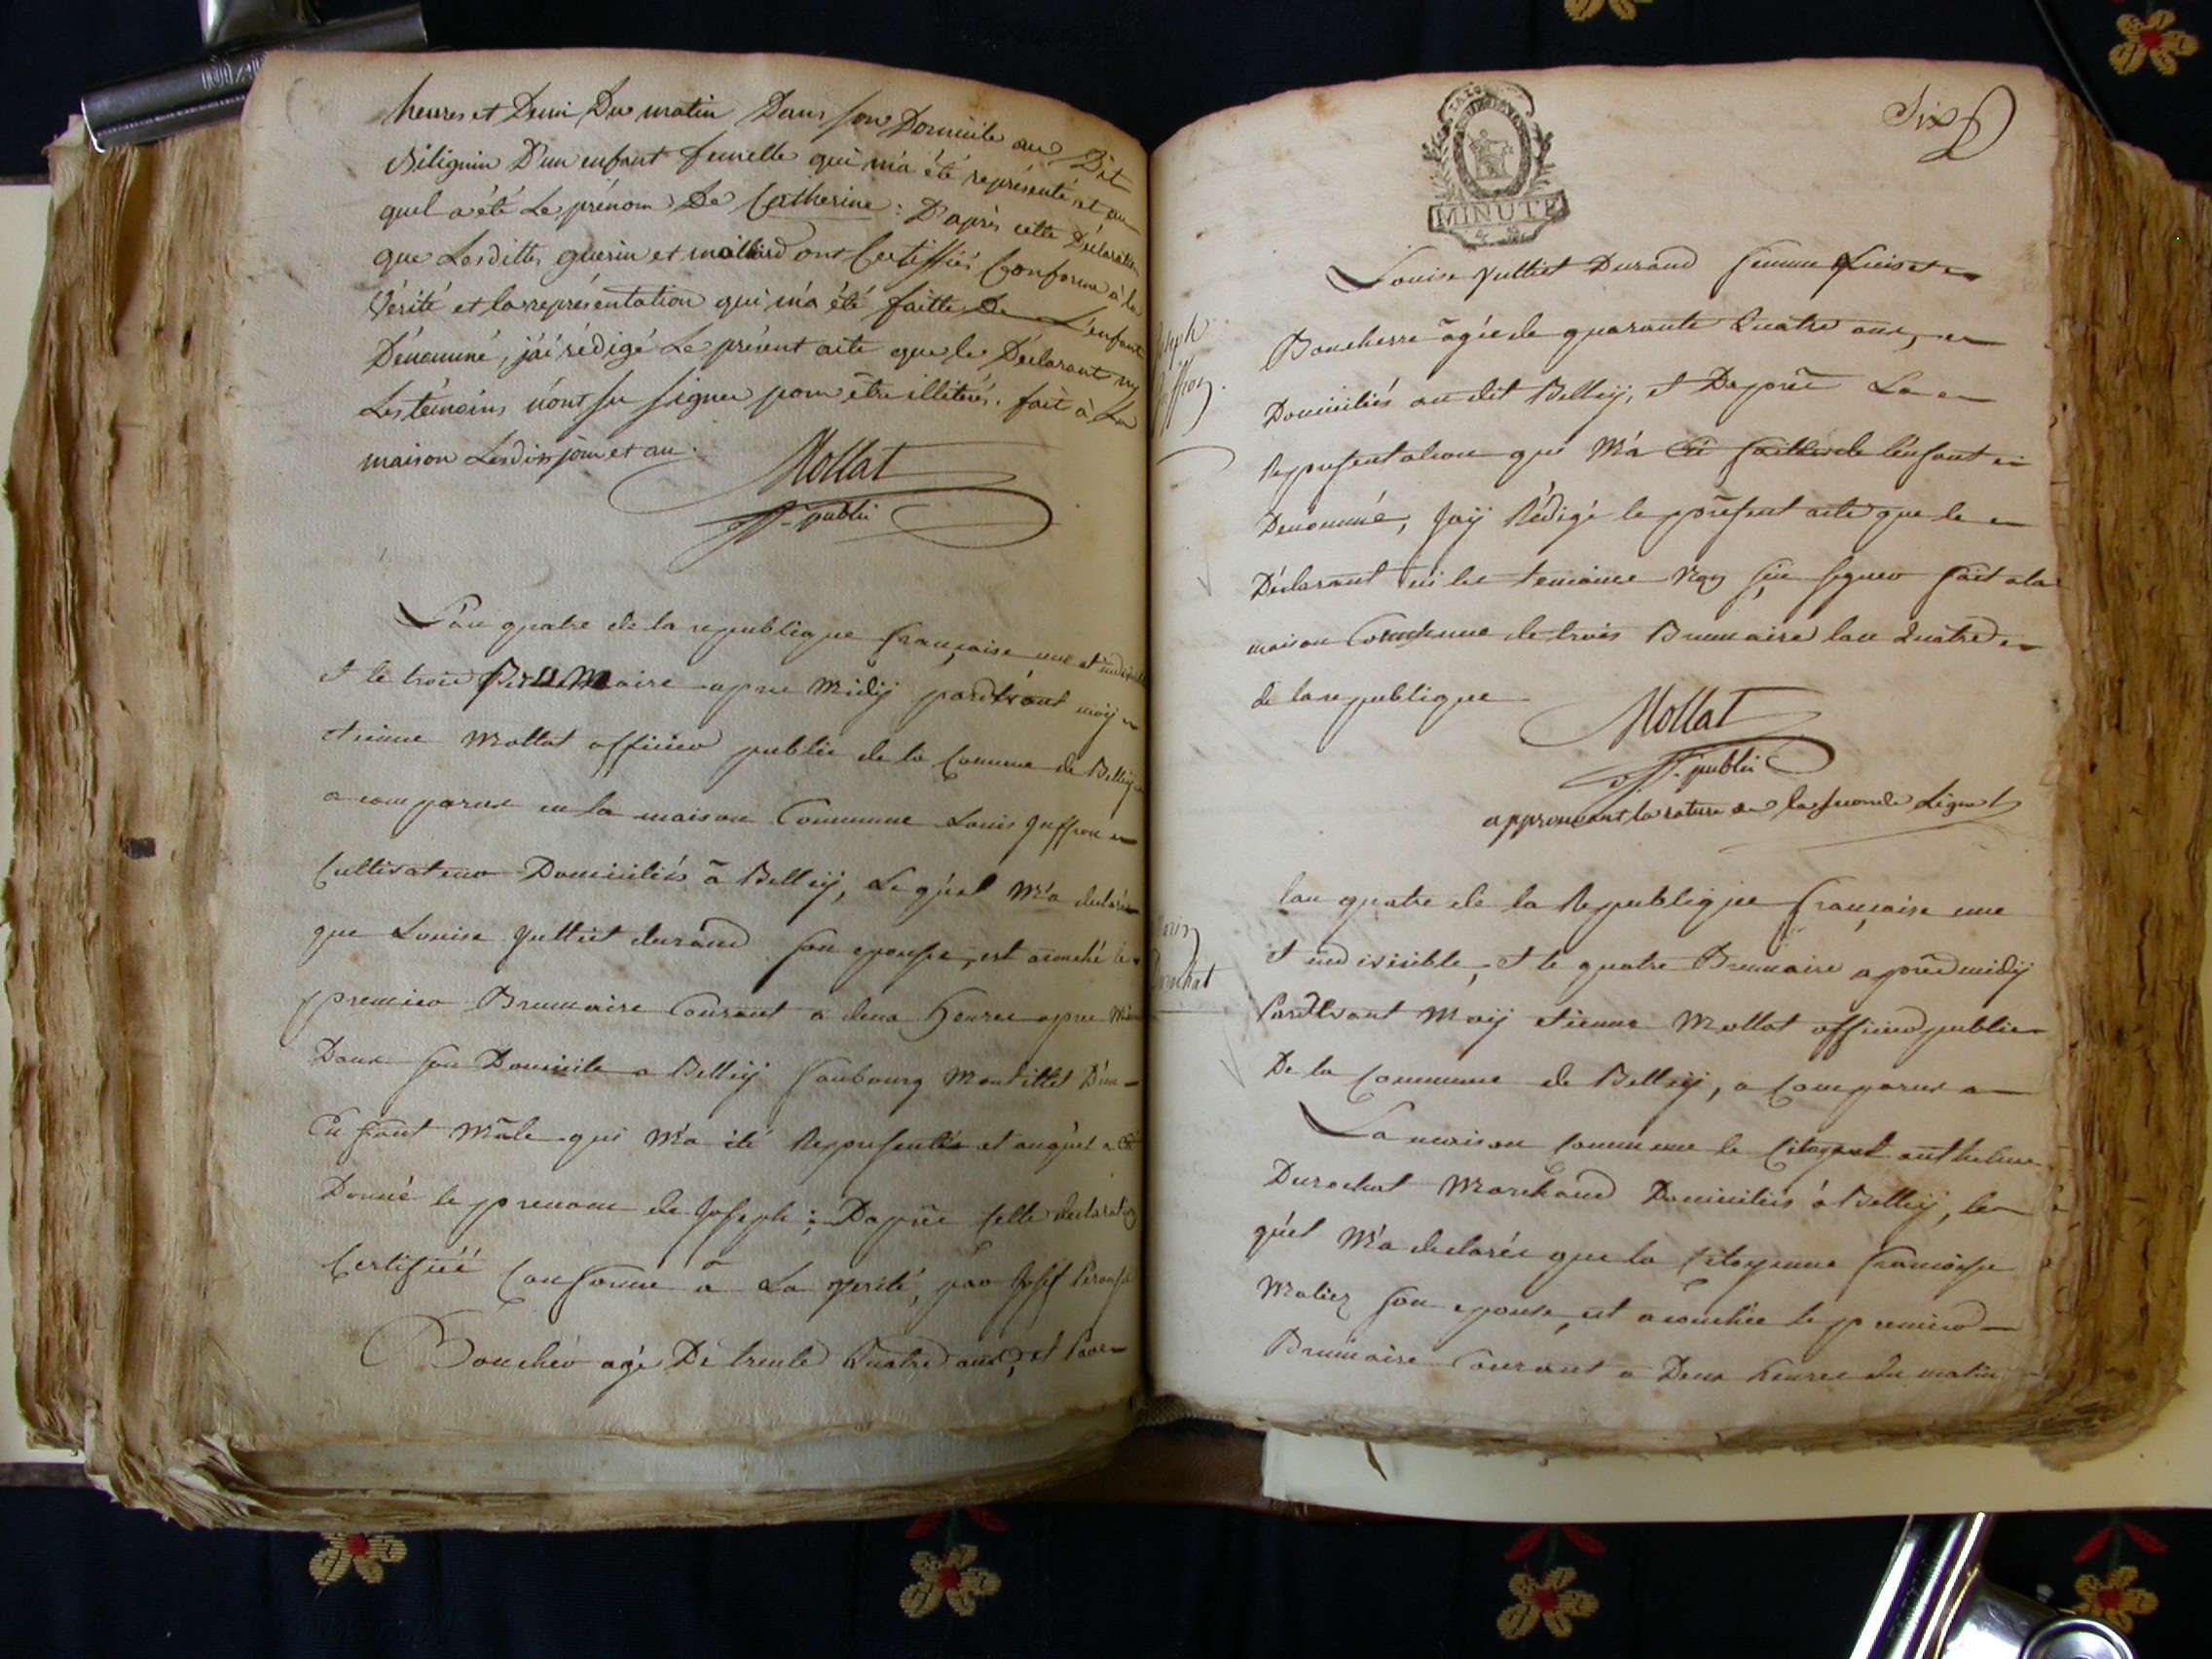 heures et Demi Du matin Dans son Domicile au Dit
Bilignin D'un enfant femelle qui m'a été représenté et au
quel a été Le prénom De Catherine : D'après cette Déclaration
que Lesdittes guerin et molliard ont Certiffiés Conforme à la
Vérité et la représentation qui m'a été faitte De L'enfant
Dénommé, j'ai rédigé Le présent acte que le Déclarant ny
Les témoins n'ont su signer pour être illiterés. fait à La
maison Lesdits jour et an.
Mollat
off. public
L'an quatre de la republique française une et indivisible
et le trois Brumaire apres Midÿ pardevant moÿ
etienne Mollat officier public de la Commune de Belleÿ
a comparu en la maison Commune Louis Juffron
Cultivateur Domiciliés à Belleÿ, Lequel M'a declarés
que Louise Julliet durand son epouse, est acouché le
premier Brumaire Courant a deux heures apres Midi
Dans son Domicile a Belleÿ faubourg Montillet D'un
Enfant Mâle qui M'a été Representés et auquel a été
Donné le prenom de Joseph ; D'aprês cette declaration
Certifiée Conforme a La verité, par Josef
Boucher agé De trente Quatre ans, et Par
Six
MINUTE
Louise Julliet Durand femme
Boucherre âgée de quarante Quatre ans,
Domiciliés au dit Belleÿ, et D'aprês La
Representation qui M'a été faitte de l'enfant
Denommé, J'aÿ Rédigé le present acte que le
Déclarant ni les temoins n'on sçu signer fait a la
maison Commune le trois Brumaire l'an Quatre
de la republique
Mollat
off. public
approuvant la rature de la seconde Ligne
Joseph
Juffron
l'an quatre de la Republique française une
et indivisible, et le quatre Brumaire après midÿ
Pardevant Moÿ etienne Mollat officier public
De la Commune de Belleÿ, a Comparu a
La maison Commune le Citoyent anthelme
Durochat Marchand Domiciliés à Belleÿ, le
quel M'a declarés que la Citoyenne françoise
Maliez son epouse, est acouchée le premier
Brumaire Courant a Deux heures du matin
Durochat